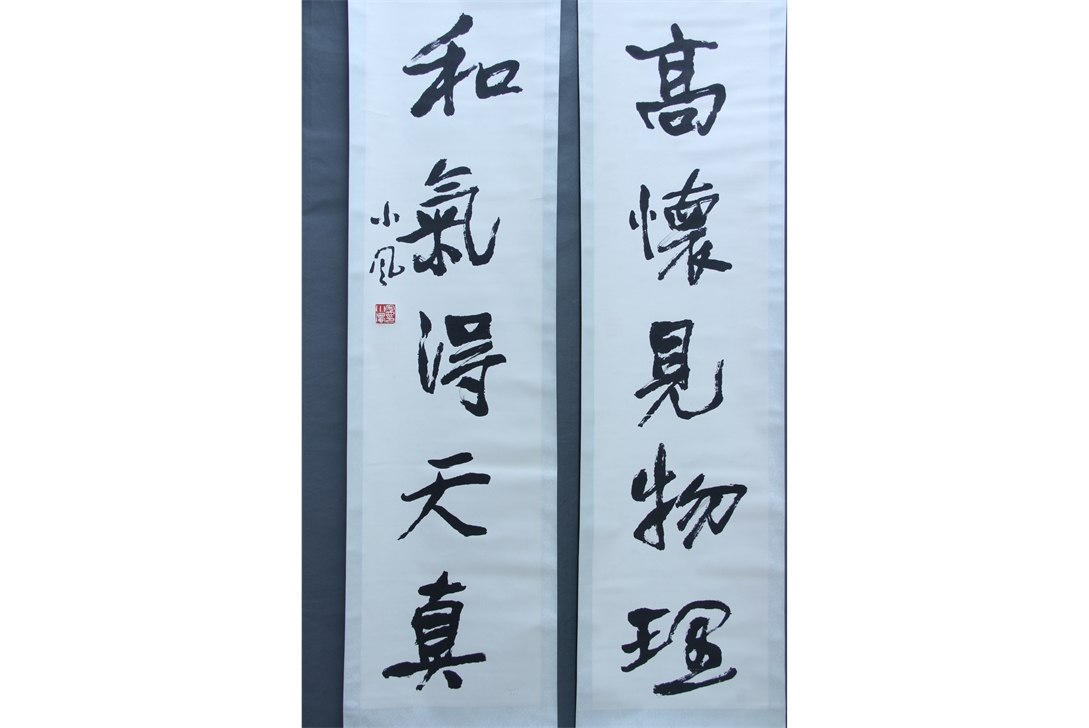 高懷見物理
和氣得天真
小风